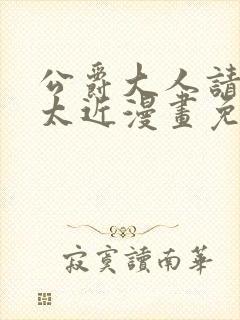 公爵大人請
太近漫畫免
寂寞讀南華